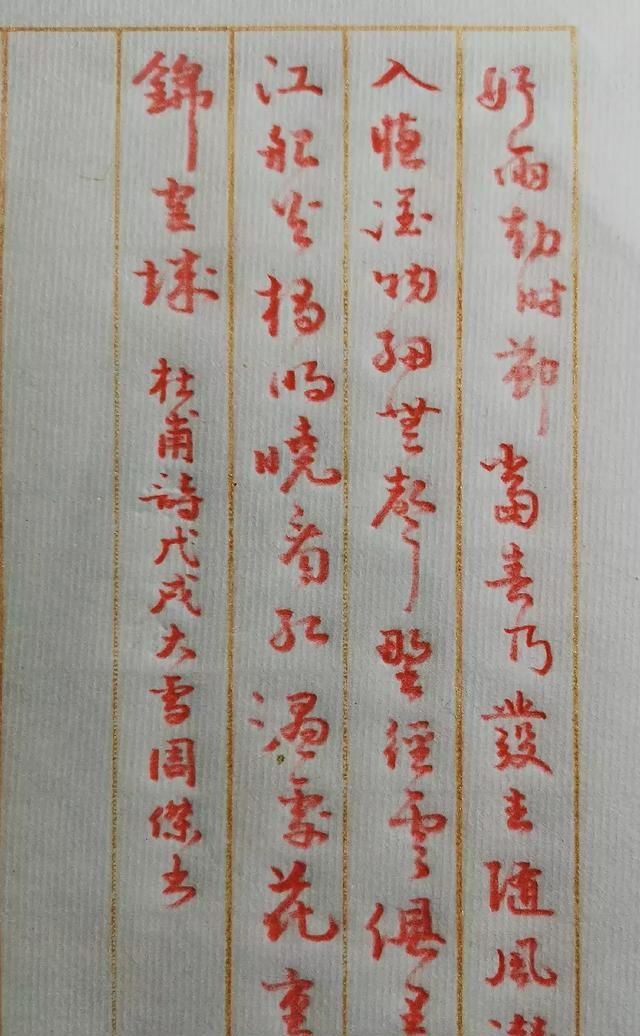 好雨知时節當春乃發生隨風潛
入夜潤物細無聲野徑雲俱黑
江船火獨明曉看紅濕處花重
錦官城 杜甫詩戊戌大雪周傑书